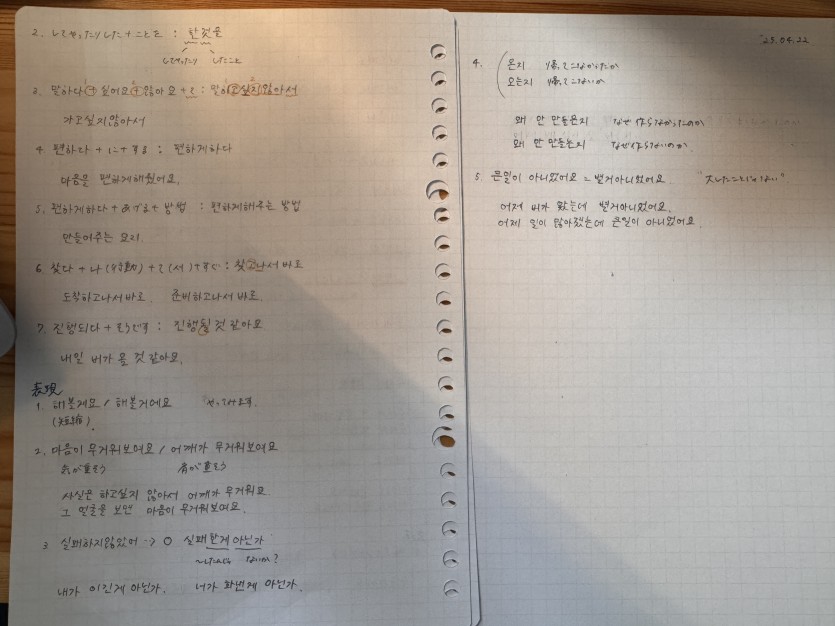 2. してた,たり した+ことを : 한것을
してた,たり したこと
3. 말하다+싶어요+않아요+て : 말하고싶지않아서
가고싶지않아서
4. 편하다+に+する : 편하게하다
마음을 편하게해줬어요.
5. 편하게하다+あげる+방법 : 편하게해주는 방법
만들어주는 요리.
6. 찾다+나(行動)+て(서)+すぐ : 찾고나서 바로
도착하고나서바로. 준비하고나서 바로.
7. 진행되다+そうです : 진행될 것 같아요
내일 비가 올 것 같아요.
表現
1. 해볼게요 / 해볼거예요 やってみます.
(短縮)
2. 마음이 무거워보여요 / 어깨가 무거워보여요
肩が重そう
사실은 하고싶지 않아서 어깨가 무거워요
그 얼굴을 보면 마음이 무거워보여요.
3. 실패하지않았어 → 실패한게 아닌가
ないか?
내가 이긴게 아닌가. 너가 화난게 아닌가.
23.04.22
4. 온지 帰ってこなかったか
오는지 帰ってこないか
왜 안 만들은지 なぜ 作らなかったのか
왜 안 만드는지 なぜ 作らないのか.
5. 큰일이 아니었어요 = 별거아니었어요. "大したことじゃない"
어제 비가 왔는데 별거아니었어요.
어제 일이 많아졌는데 큰일이 아니었어요.